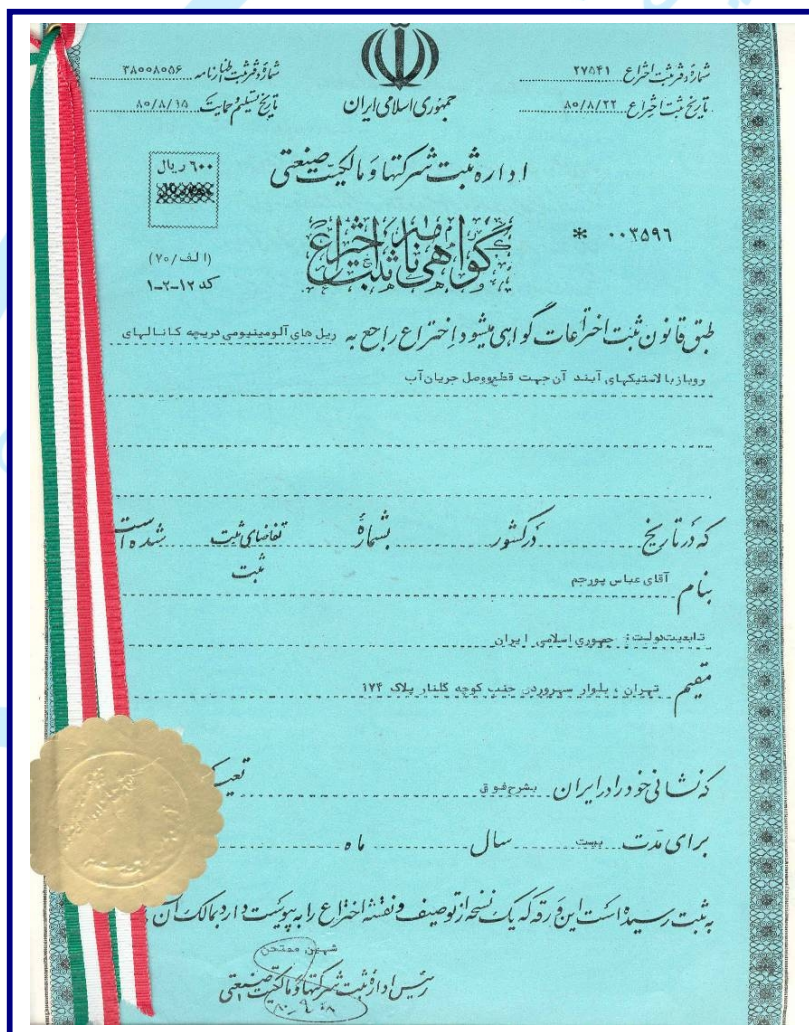 شماره دفتر ثبت اختراع ۲۷۵۴۱
تاریخ ثبت اختراع ۸۰/۸/۲۲
جمهوری اسلامی ایران
شماره دفتر ثبت اظهارنامه ۳۸۰۰۸۰۵۶
تاریخ تسلیم و حمایت ۸۰/۸/۱۵
اداره ثبت شرکتها و مالکیت صنعتی
۶۰۰ ریال
گواهی نامه ثبت اختراع
* ۰۰۳۵۹۶
(الف/۷۰)
کد ۱۲-۲-۱
طبق قانون ثبت اختراعات گواهی میشود اختراع راجع به ریل های آلومینیومی دریچه کانالهای
روباز با لاستیکهای آبند آن جهت قطع ووصل جریان آب
که در تاریخ در کشور بشماره تقاضای ثبت شده است
ثبت
بنام آقای عباس پورجم
تابعیت دولت: جمهوری اسلامی ایران
مقیم تهران ، بلوار سهروردی جنب کوچه گلنار پلاک ۱۷۴
که نشانی خود را در ایران بشرح فوق
برای مدت بیست سال ماه
به ثبت رسیده است این ورقه که یک نسخه از توصیف و نقشه اختراع را به پیوست دارد بمالک آن
رئیس اداره ثبت شرکتها و مالکیت صنعتی